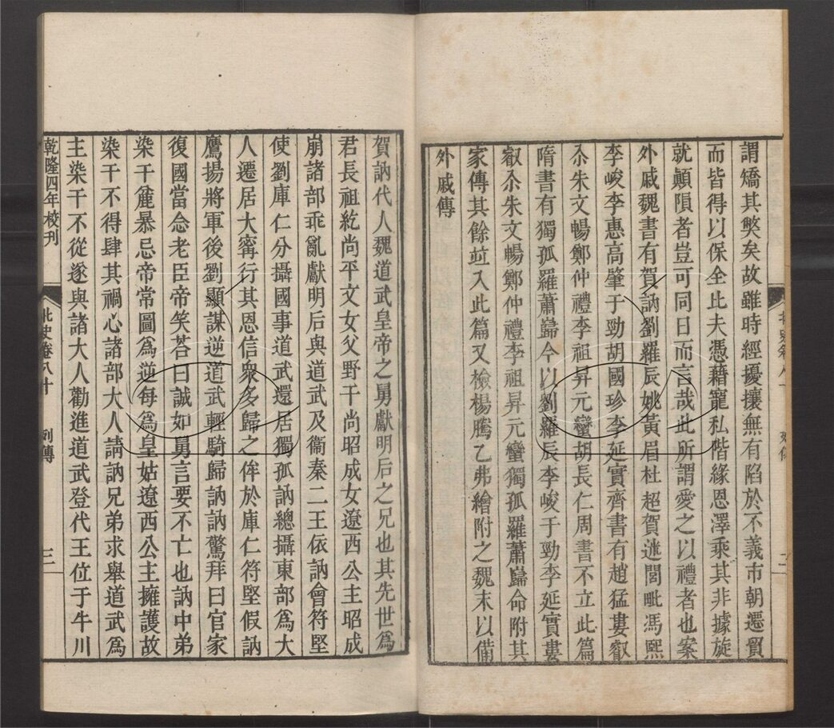 謂矯其獘矣故雖時經擾攘無有陷於不義市朝遷貿
而皆得以保全比夫憑藉寵私階緣恩澤乘其非據旋
就顛隕者豈可同日而言哉此所謂愛之以禮者也案
外戚魏書有賀訥劉羅辰姚黃眉杜超賀迷閭毗馮熙
李峻李惠高肇于勁胡國珍李延實齊書有趙猛婁叡
尒朱文暢鄭仲禮李祖昇元蠻胡長仁周書不立此篇
隋書有獨孤羅蕭巋今以劉羅辰李峻于勁李延實婁
叡尒朱文暢鄭仲禮李祖昇元蠻獨孤羅蕭巋命附其
家傳其餘竝入此篇又檢楊騰乙弗繪附之魏末以備
外戚傳
賀訥代人魏道武皇帝之舅獻明后之兄也其先世爲
君長祖紇尚平文女父野干尚昭成女遼西公主昭成
崩諸部乖亂獻明后與道武及衞秦二王依訥會符堅
使劉庫仁分攝國事道武還居獨孤訥總攝東部爲大
人遷居大甯行其恩信衆多歸之侔於庫仁符堅假訥
鷹揚將軍後劉顯謀逆道武輕騎歸訥訥驚拜曰官家
復國當念老臣帝笑荅曰誠如舅言要不亡也訥中弟
染干麄暴忌帝常圖爲逆每爲皇姑遼西公主擁護故
染干不得肆其禍心諸部大人請訥兄弟求舉道武爲
主染干不從遂與諸大人勸進道武登代王位于牛川
乾隆四年校刊
北史卷八十
列傳
三